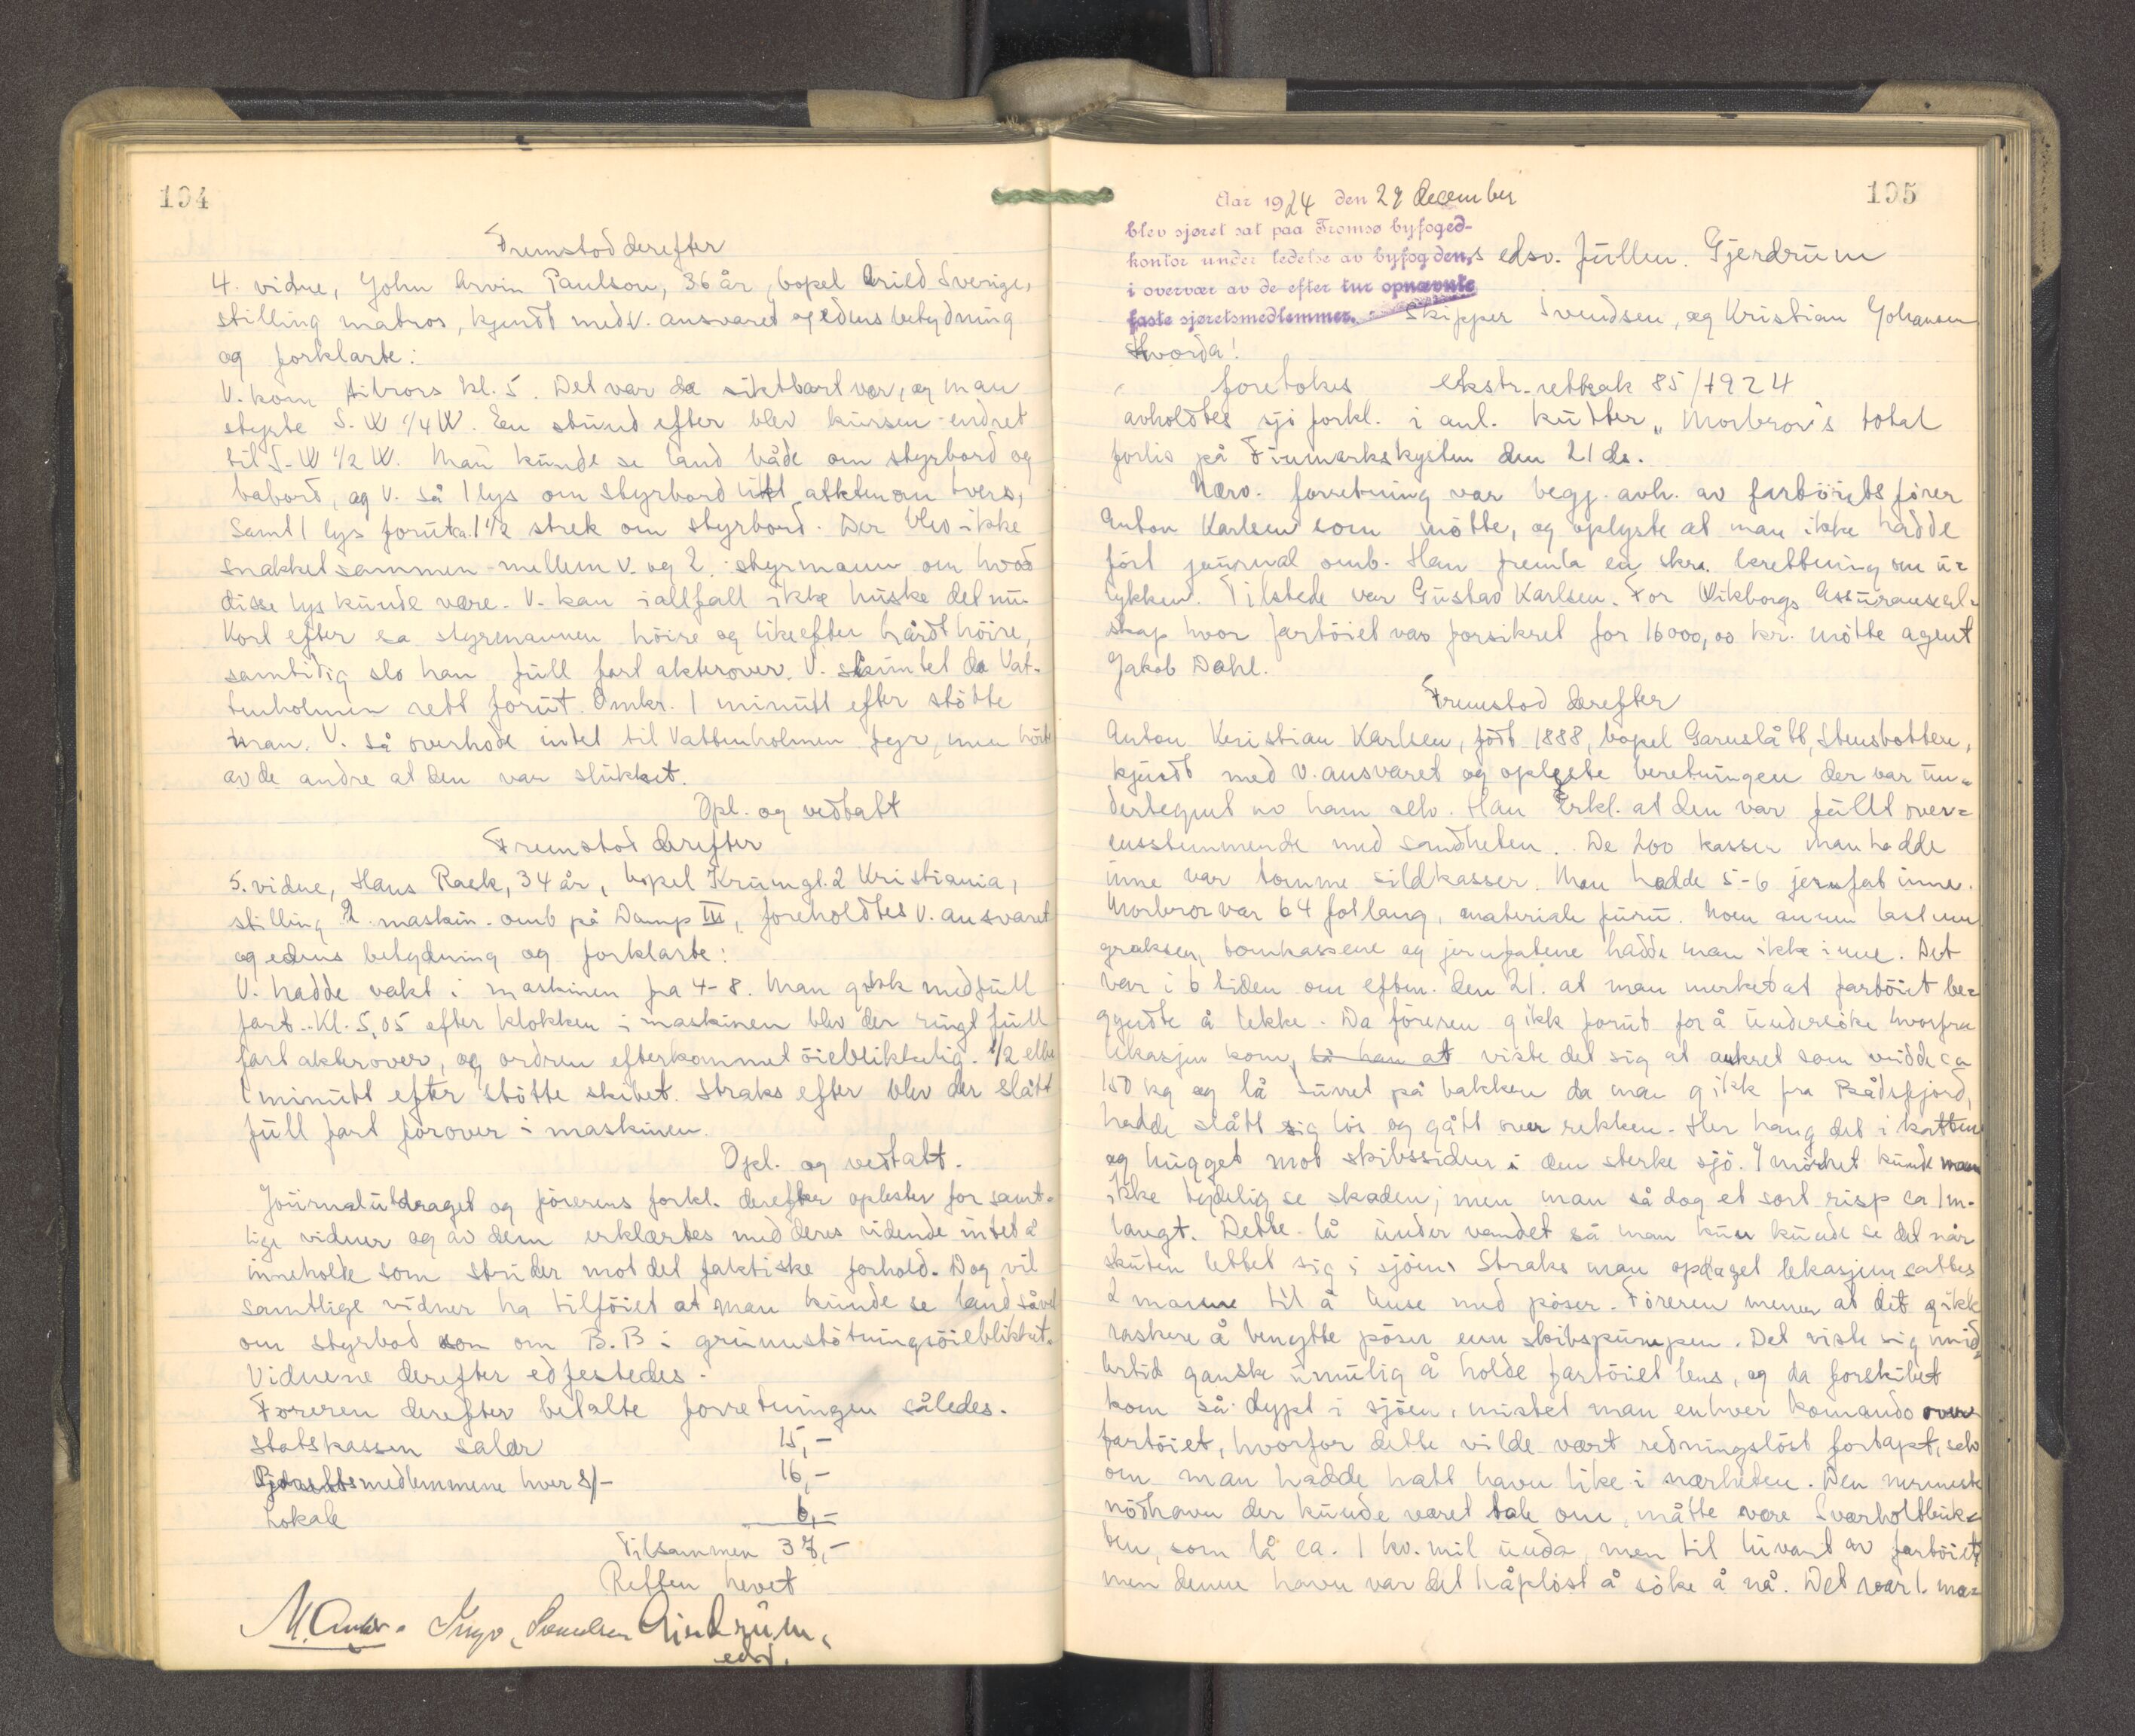 194
Fremstod derefter
4. vidne, John Arvin Paulson, 36 år, bopel Arild Sverige,
stilling matros, kjendt med v. ansvaret og edens betydning
og forklarte:
V. kom tilrors kl. 5. Det var da siktbart vær, og man
styrte S-W 1/4 W. En stund efter blev kursen endret
til S-W 1/2 W. Man kunde se land både om styrbord og
babord, og v. så 1 lys om styrbord litt aktenom tvers,
samt 1 lys forut ca. 1 1/2 strek om styrbord. Der blev ikke
snakket sammen mellem v. og 2. styrmann om hvad
disse lys kunde være. V. kan iallfall ikke huske det nu.
Kort efter sa styrmannen höire og like efter hårdt höire,
samtidig slo han full fart akterover. V. skimtet da Vat-
tenholmen rett forut. Omkr. 1 minutt efter stötte
man. V. så overhode intet til Vattenholmen fyr, men hörte
av de andre at den var slukket.
Opl. og vedtatt
Fremstod derefter
5. vidne, Hans Rask, 34 år, bopel Krumgt. 2 Kristiania,
stilling 2. maskin. omb på Damp III, foreholdtes v. ansvaret
og edens betydning og forklarte:
V. hadde vakt i maskinen fra 4-8. Man gikk med full
fart. Kl. 5,05 efter klokken i maskinen blev der ringt full
fart akterover, og ordren efterkommet öieblikkelig. 1/2 eller
1 minutt efter stötte skibet. Straks efter blev der slått
full fart forover i maskinen.
Opl. og vedtatt.
Journalutdraget og förerens forkl. derefter oplestes for samt-
lige vidner og av dem erklærtes med deres vidende intet å
inneholde som strider mot det faktiske forhold. Dog vil
samtlige vidner ha tilföiet at man kunde se land såvel
om styrbod som om B.B i grunnstötningsöieblikket.
Vidnene derefter edfestedes.
Föreren derefter betalte forretningen således.
Statskassen salær 15,-
Sjörettsmedlemmene hver 8/- 16,-
Lokale 6,-
Tilsammen 37,-
Retten hevet
Svendsen Gjerdrüm.
edsv.
195
Aar 1924 den 29 december
blev sjøret sat paa Tromsø byfoged-
kontor under ledelse av byfogdens edsv. fullm. Gjerdrüm
i overvær av de efter tur opnævnte
faste sjøretsmedlemmer. Skipper Svendsen, og Kristian Johansen
Hvorda!
foretokes ekstr. rettsak 85/1924
avholdtes sjöforkl. i anl. kutter "Morbror's total
forlis på Finmarkskysten den 21 ds.
Nærv. forretning var begj. avh. av fartöiets förer
Anton Karlsen som mötte, og oplyste at man ikke hadde
fört journal omb. Han fremla en skr. beretning om u-
lykken. Tilstede var Gustav Karlsen. For Vikborgs Assüransesel-
skap hvor fartöiet var forsikret for 16000,00 kr. mötte agent
Jakob Dahl.
Fremstod derefter
Anton Kristian Karlsen, födt 1888, bopel Garnslått, Stensbotten,
kjendt med v. ansvaret og opleste beretningen der var un-
dertegnet av ham selv. Han erkl. at den var fullt over-
ensstemmende med sandheten. De 200 kasser man hadde
inne var tomme sildkasser. Man hadde 5-6 jernfat inne.
Morbror var 64 fot lang, materiale furu. Noen annen last enn
graksen, tomkassene og jernfatene hadde man ikke inne. Det
var i 6 tiden om eftm. den 21. at man merket at fartöiet be-
gyndte å lekke. Da föreren gikk forut for å undersöke hvorfra
lekasjen kom, så han at viste det sig at ankret som veidde ca
150 kg og lå surret på bakken da man gikk fra Bådsfjord,
hadde slått sig lös og gått over rekken. Her hang det i katten
og hugget mot skibssiden i den sterke sjö. I mörket kunde man
ikke tydelig se skaden, men man så dog et sort risp ca 1 m.
langt. Dette lå under vandet så man kun kunde se det når
skuten lettet sig i sjöen. Straks man opdaget lekasjen sattes
2 manne til å ause med pöser. Föreren mener at det gikk
raskere å benytte pöser enn skibspumpen. Det viste sig imid-
lertid ganske umulig å holde fartöiet lens, og da forskibet
kom så dypt i sjöen, mistet man enhver komando over
fartöiet, hvorfor dette vilde vært redningslöst fortapt, selv
om man hadde hatt havn like i nærheten. Den nermeste
nödhavn der kunde været tale om, måtte være Sværholtbuk-
ten, som lå ca. 1 kv. mil unda, men til luvart av fartöiet,
men denne havn var det håplöst å söke å nå. Det var 1. ma-